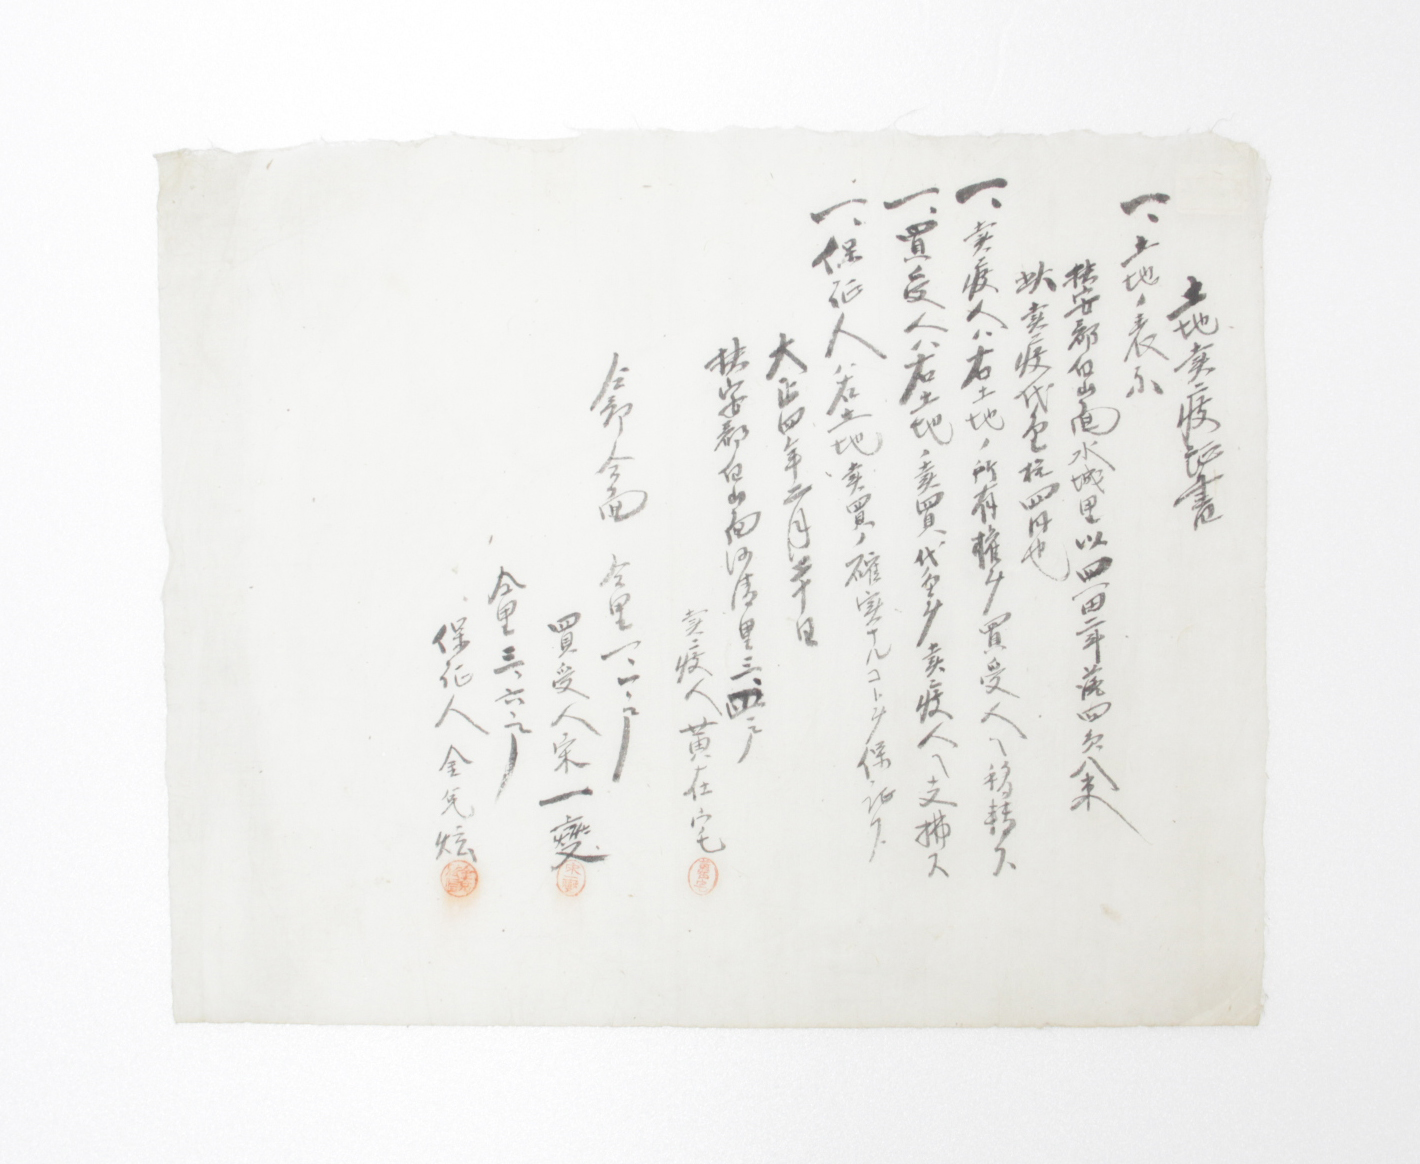 土地売渡証書
一、土地ノ表示
扶安郡白山面水城里以四田二斗落四負八束
此売渡代金拾四円也
一、売渡人ハ右土地ノ所有権ヲ買受人ヘ移転ス
一、買受人ハ右土地ノ売買代金ヲ売渡人ヘ支払ス
一、保証人ハ右土地売買ノ確実ナルコトヲ保証ス
大正四年二月 十日
扶安郡白山面 里三、四、戸
売渡人 黄在宅
仝郡仝面 仝里一、一、戸
買受人 宋一燮
仝里三、六、戸
保証人 金 炫